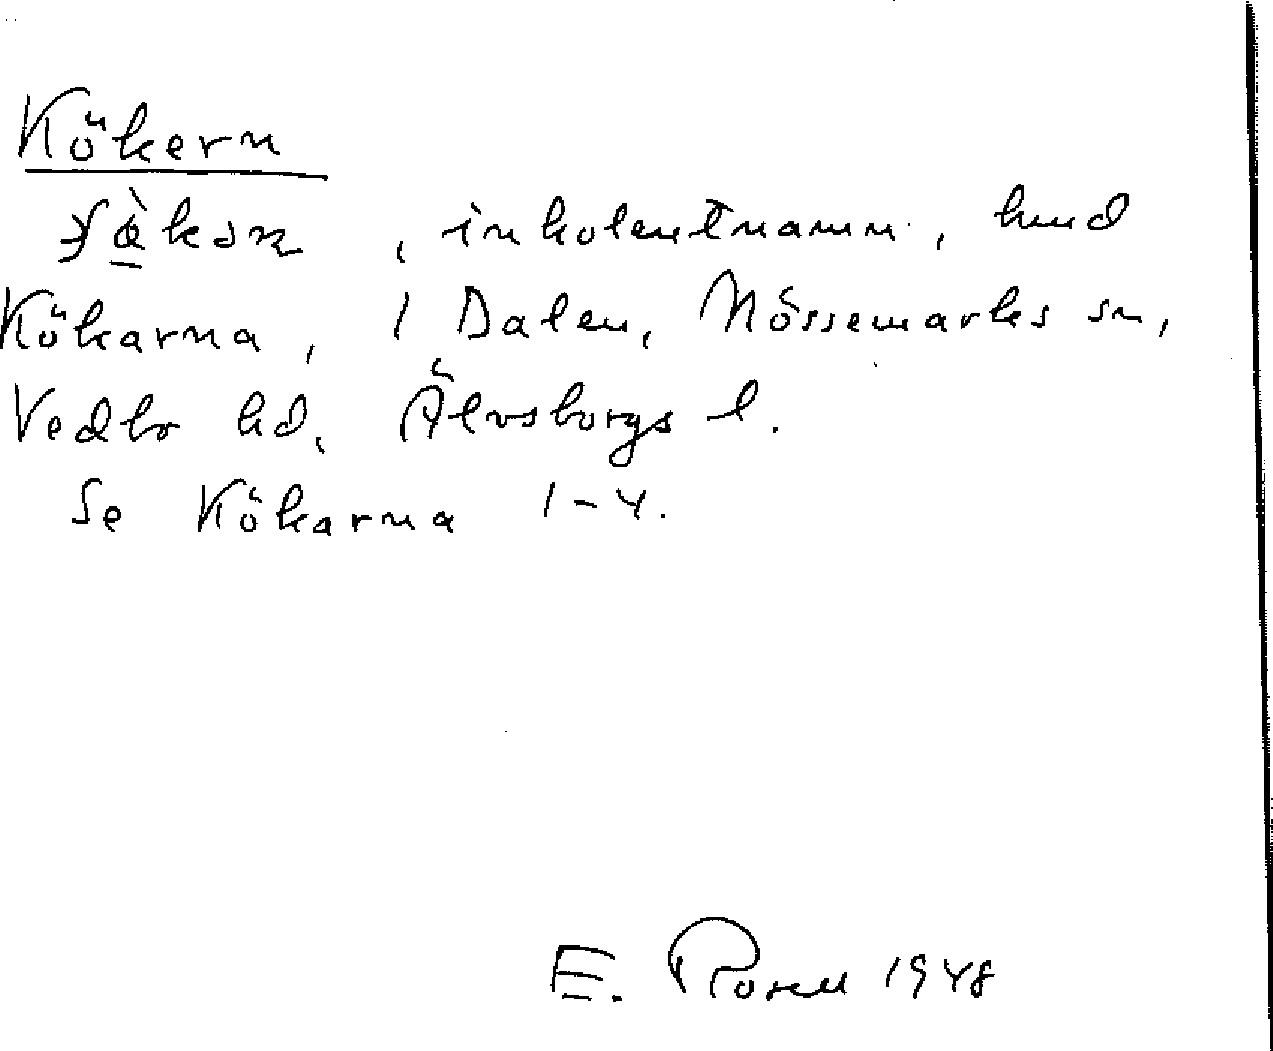 Kökern
, inkolentnamn, hmd
Kökarna, 1 Dalen, Nössemarks sn,
Vedbo hd, Älvsborgs l.
Se Kökarna 1-4.
E. 1948